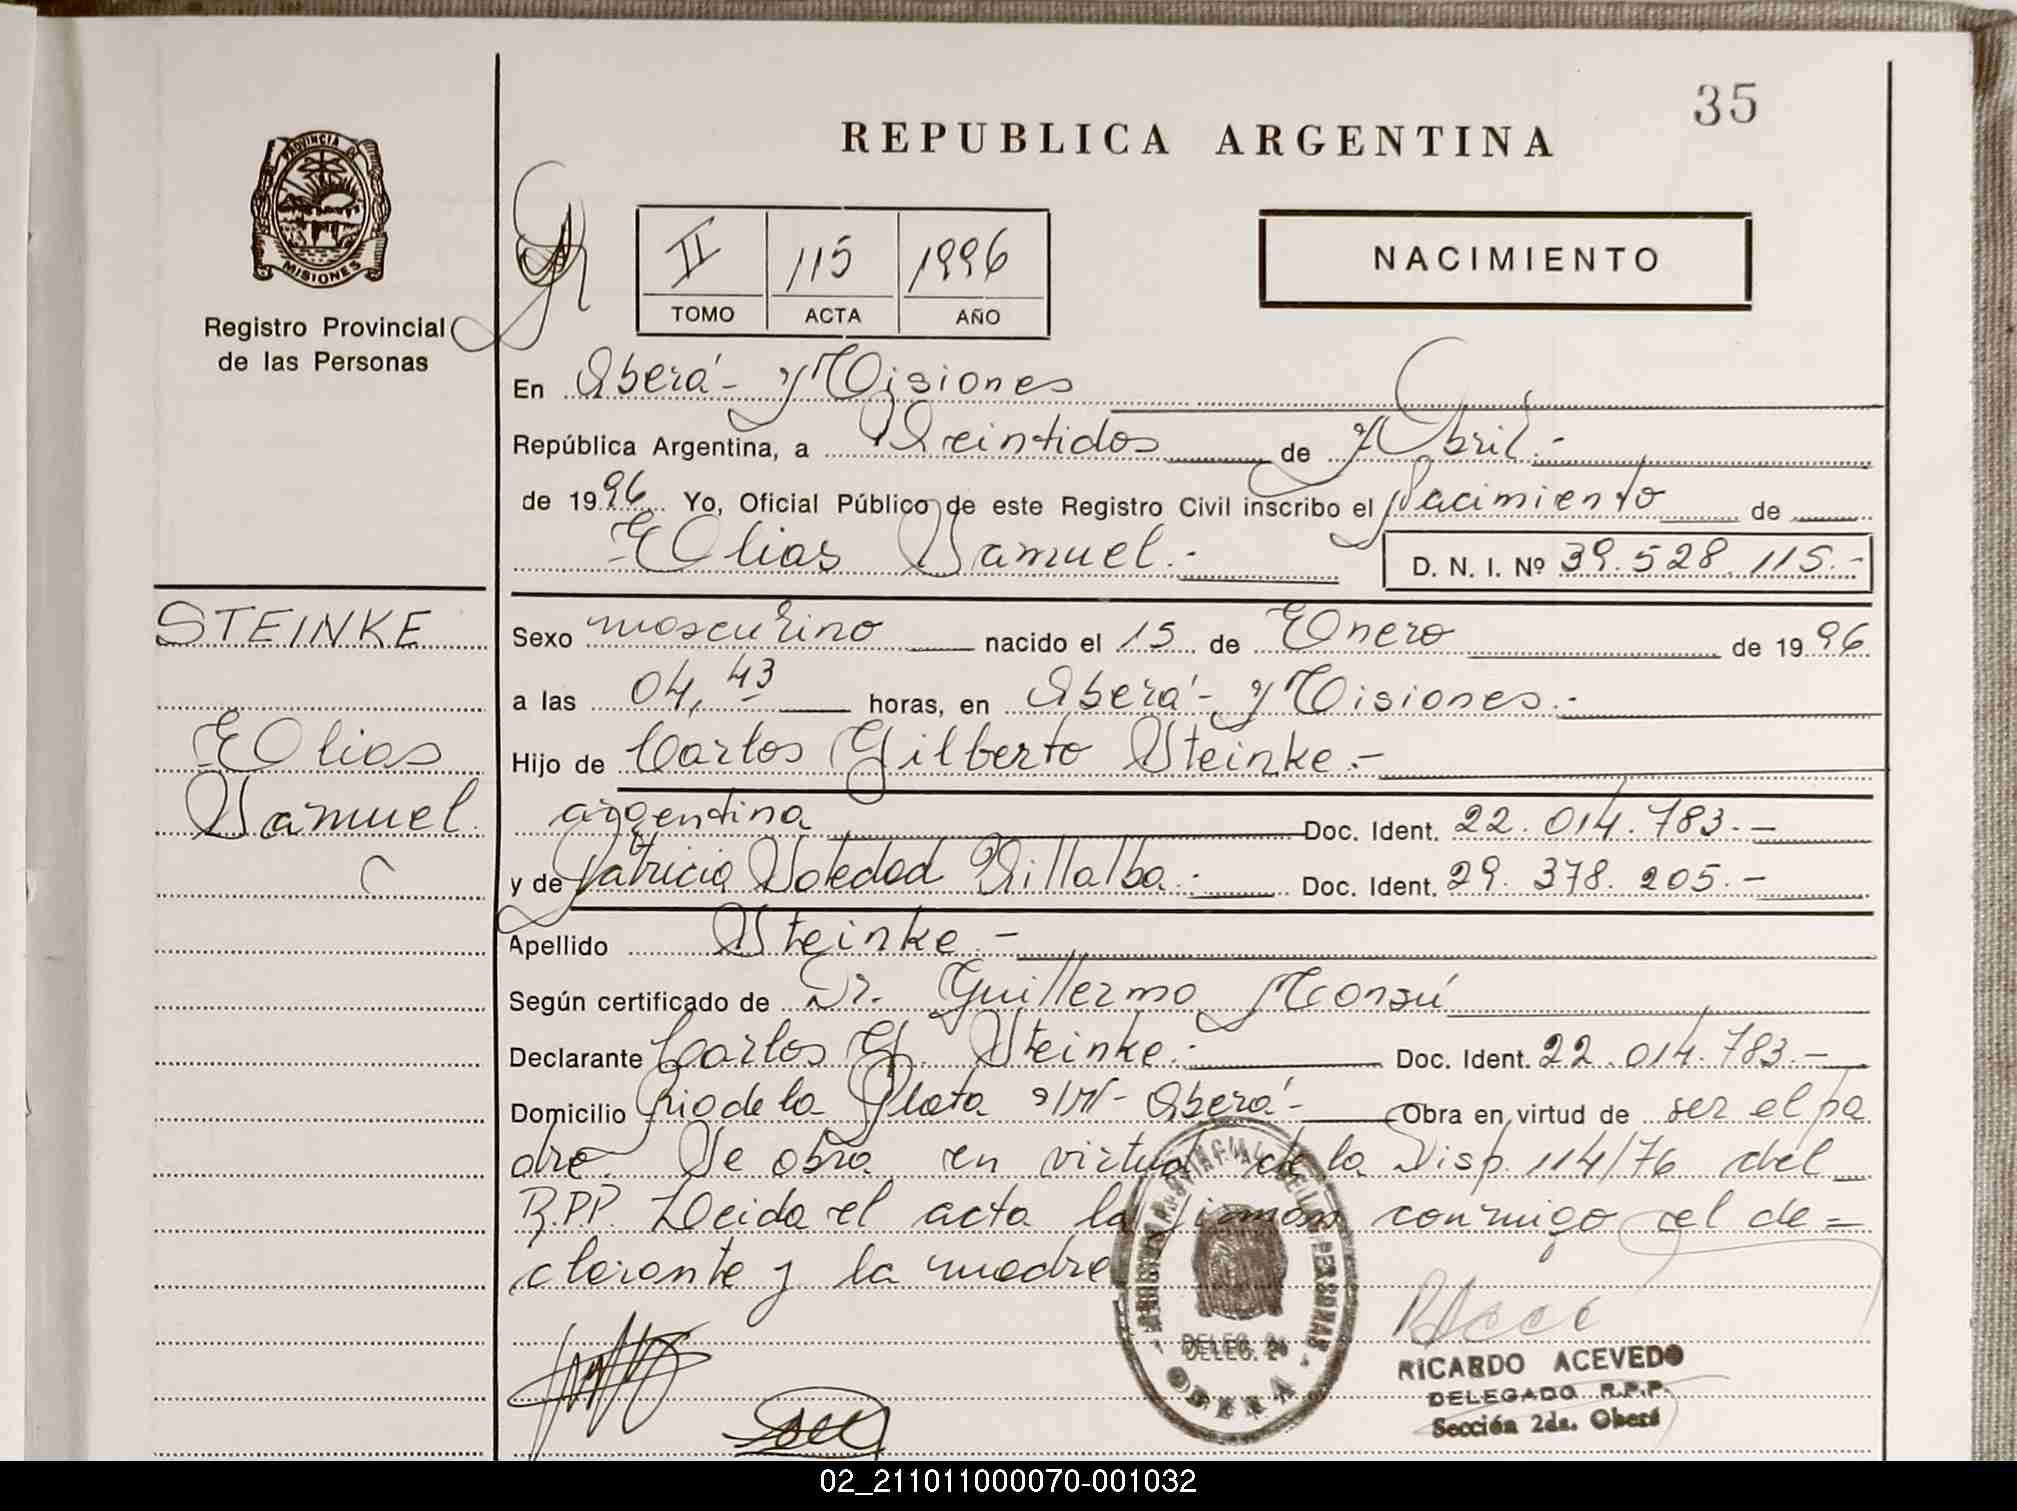 35
REPUBLICA ARGENTINA
PROVINCIA DE
MISIONES
Registro Provincial
de las Personas
II 115 1996
TOMO ACTA AÑO
NACIMIENTO
En Oberá - Misiones
República Argentina, a Veintidos de Abril.-
de 1996 Yo, Oficial Público de este Registro Civil inscribo el Nacimiento de
Elias Samuel.- D. N. I. Nº 39.528.115.-
STEINKE
Elias
Samuel
Sexo masculino nacido el 15 de Enero de 1996
a las 04,43 horas, en Oberá - Misiones.-
Hijo de Carlos Gilberto Steinke.-
argentina Doc. Ident. 22.014.783.-
y de Patricia Soledad Villalba.- Doc. Ident. 29.378.205.-
Apellido Steinke.-
Según certificado de Dr. Guillermo Monsú
Declarante Carlos G. Steinke.- Doc. Ident. 22.014.783.-
Domicilio Rio de la Plata s/N- Oberá- Obra en virtud de ser el pa
dre. Se obra en virtud de la Disp. 114/76 del
R.P.P. Leida el acta la firman conmigo el de=
clarante y la madre
REGISTRO PROVINCIAL DE LAS PERSONAS
DELEG. 2ª
OBERA
RICARDO ACEVEDO
DELEGADO R.P.P.
Sección 2da. Oberá
02_211011000070-001032